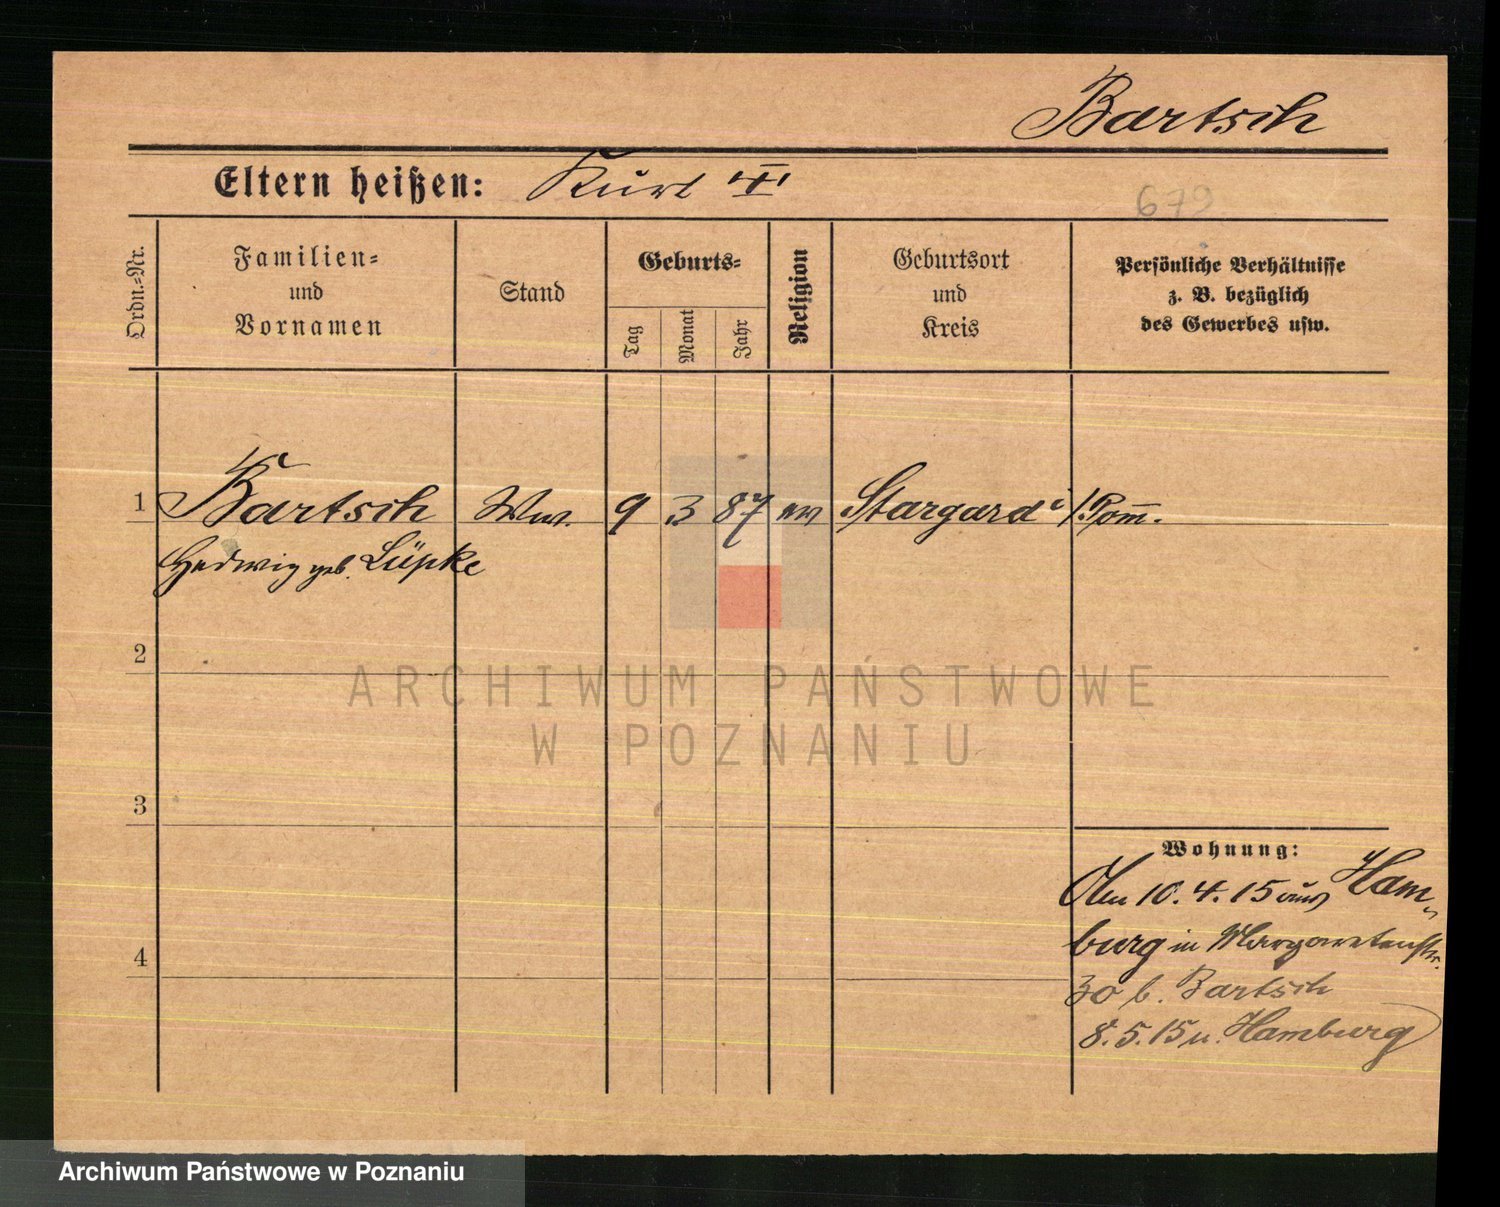 Bartsch
Eltern heißen: Kurt "I"
679
Ordn.-Nr.
Familien=
und
Vornamen
Stand
Geburts=
Tag
Monat
Jahr
Religion
Geburtsort
und
Kreis
Persönliche Verhältnisse
z. B. bezüglich
des Gewerbes usw.
1 Bartsch Ww. 9 3 87 ev Stargard i/Pom.
Hedwig geb. Lüpke
2
3
4
Wohnung:
Am 10.4.15 aus Ham-
burg in Margaretenstr.
30 b. Bartsch
8.5.15 n. Hamburg
ARCHIWUM PAŃSTWOWE
W POZNANIU
Archiwum Państwowe w Poznaniu